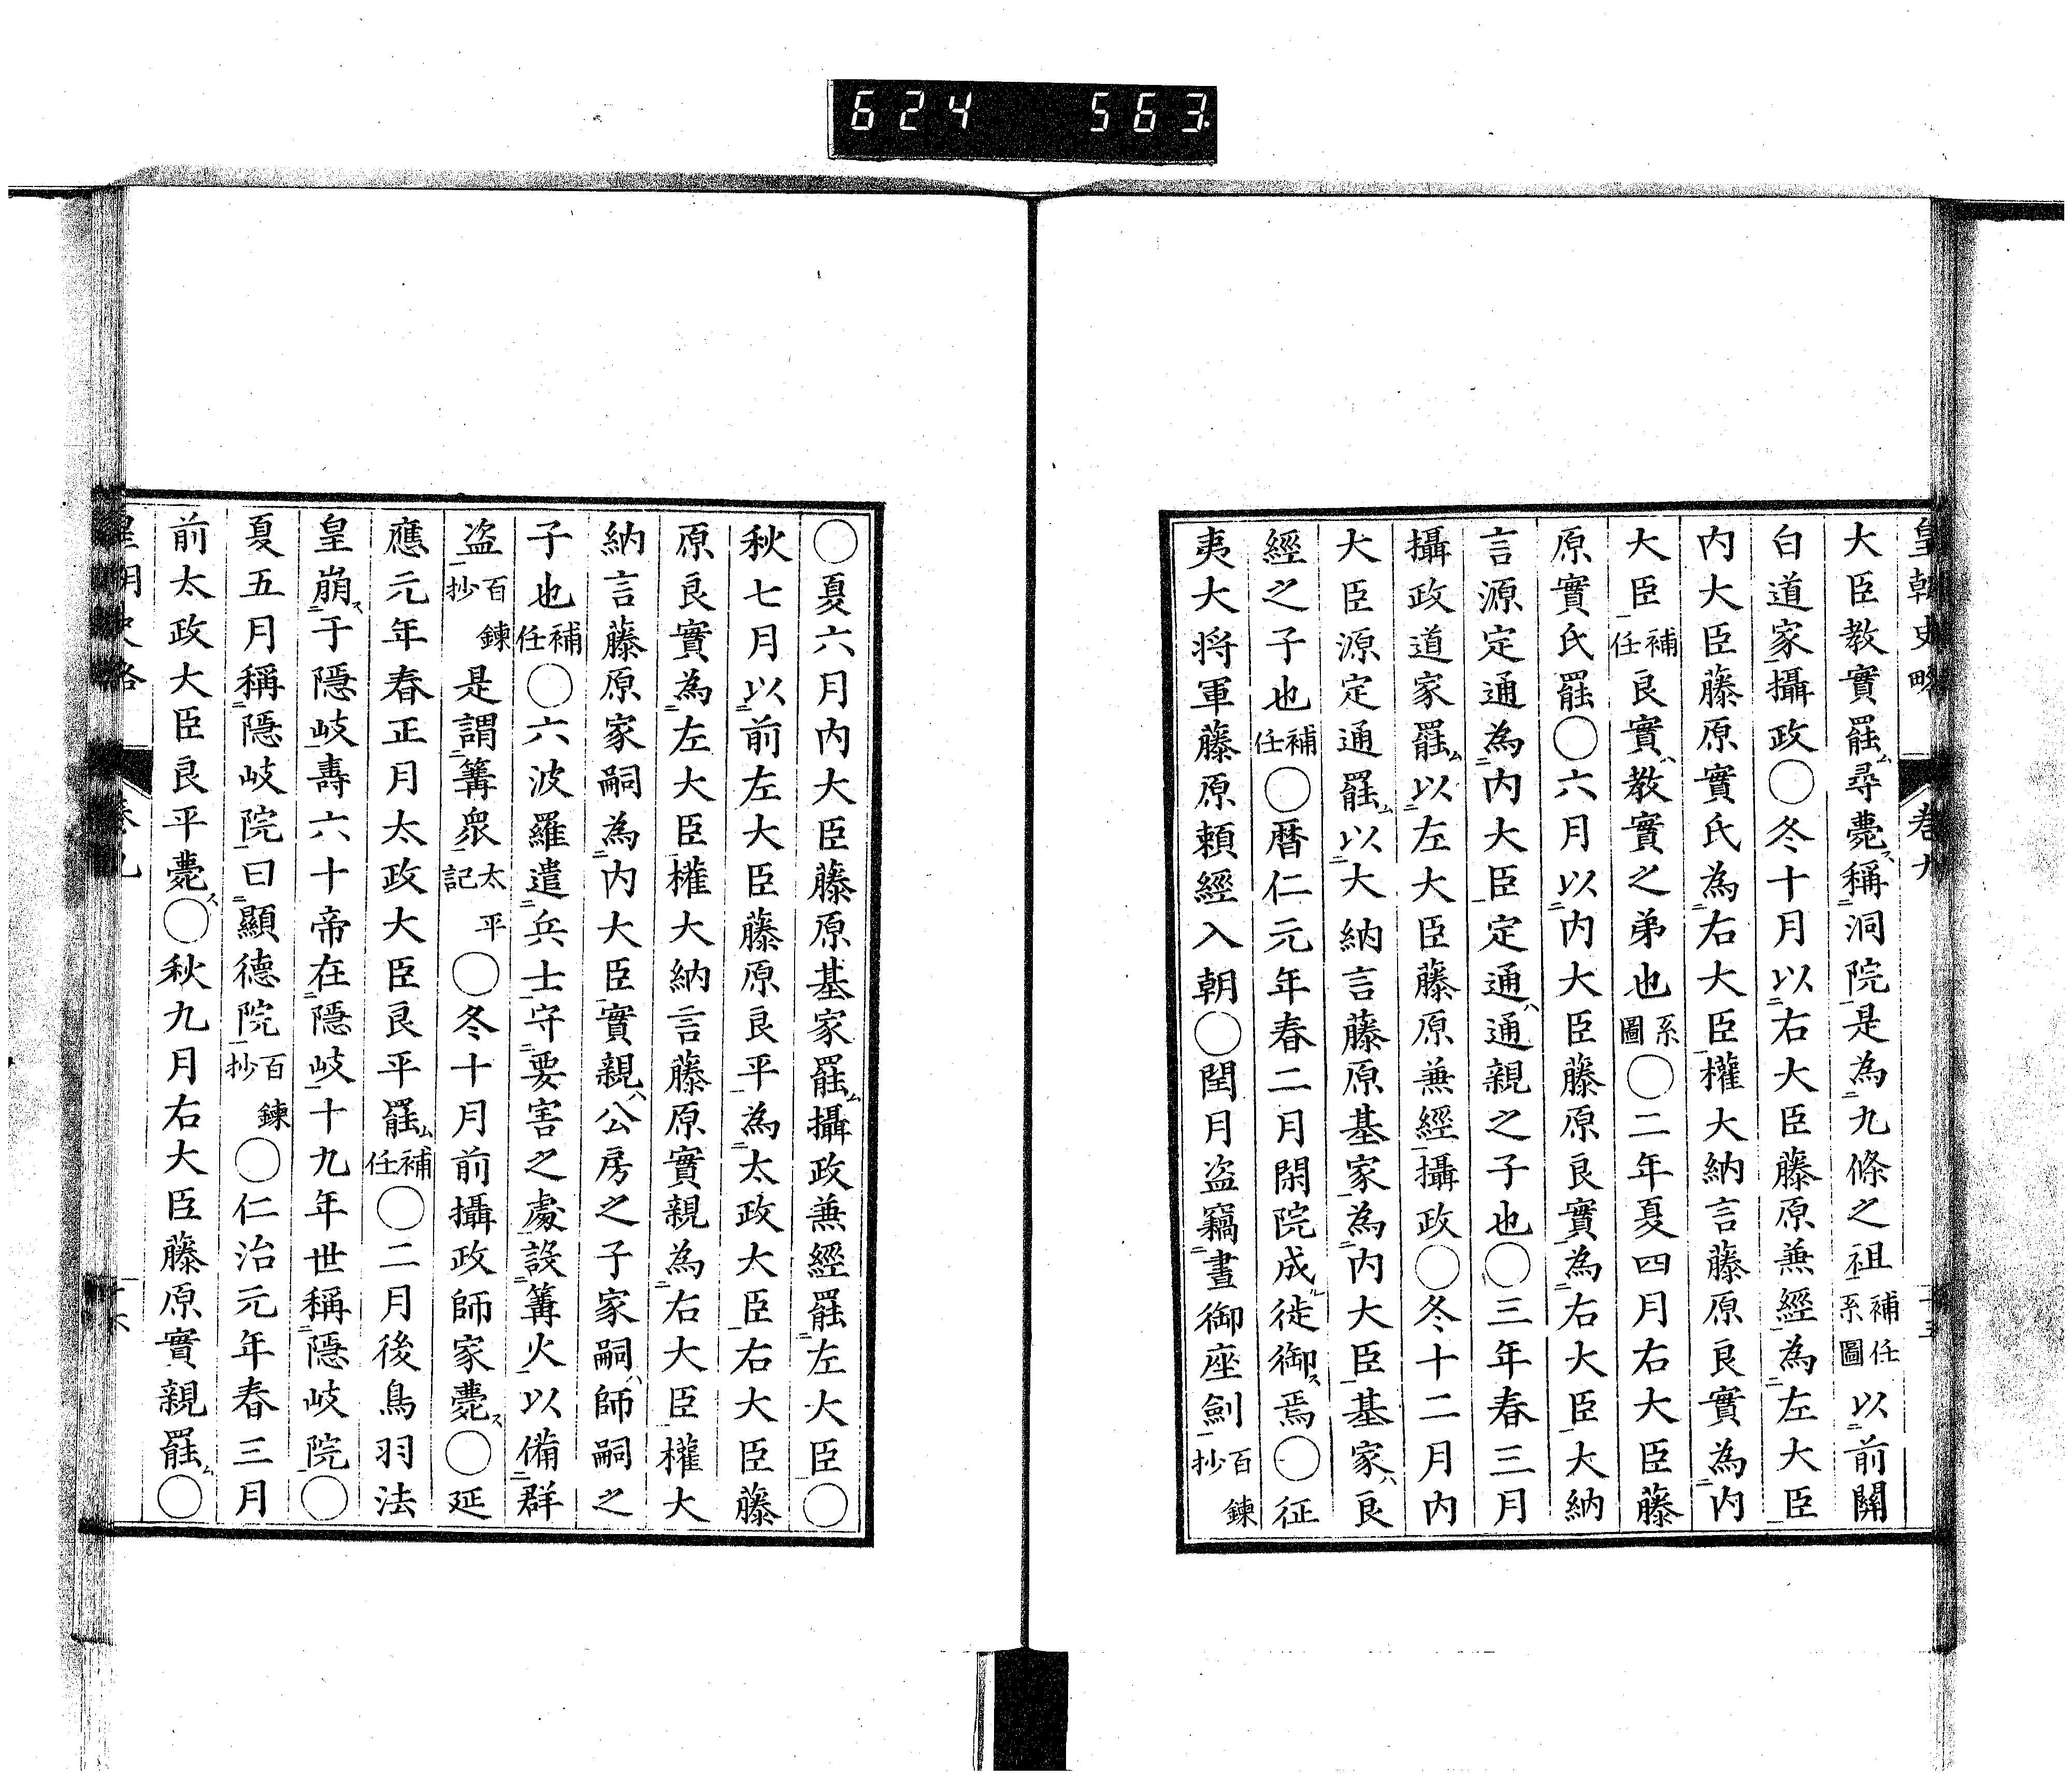 624 563
皇朝史略 卷九
大臣教實罷ム尋薨ス稱二洞院一是為二九條之祖一補任系圖以二前關
白道家一攝政〇冬十月以二右大臣藤原兼經一為二左大臣一
内大臣藤原實氏為二右大臣一權大納言藤原良實為二内
大臣一補任良實ハ教實之弟也系圖〇二年夏四月右大臣藤
原實氏罷〇六月以二内大臣藤原良實一為二右大臣一大納
言源定通為二内大臣一定通ハ通親之子也〇三年春三月
攝政道家罷ム以二左大臣藤原兼經一攝政〇冬十二月内
大臣源定通罷ム以二大納言藤原基家一為二内大臣一基家ハ良
經之子也補任〇曆仁元年春二月閑院成ル徙御ス焉〇征
夷大将軍藤原頼經入朝〇閏月盗竊二晝御座劍一百鍊抄
〇夏六月内大臣藤原基家罷ム攝政兼經罷二左大臣一〇
秋七月以二前左大臣藤原良平一為二太政大臣一右大臣藤
原良實為二左大臣一權大納言藤原實親為二右大臣一權大
納言藤原家嗣為二内大臣一實親ハ公房之子家嗣ハ師嗣之
子也補任〇六波羅遣二兵士一守二要害之處一設二篝火一以備二群
盗一百鍊抄是謂二篝衆一太平記〇冬十月前攝政師家薨ス〇延
應元年春正月太政大臣良平罷ム補任〇二月後鳥羽法
皇崩ス二于隱岐一壽六十帝在二隱岐一十九年世稱二隱岐院一〇
夏五月稱二隱岐院一曰二顯德院一百鍊抄〇仁治元年春三月
前太政大臣良平薨ス〇秋九月右大臣藤原實親罷ム〇